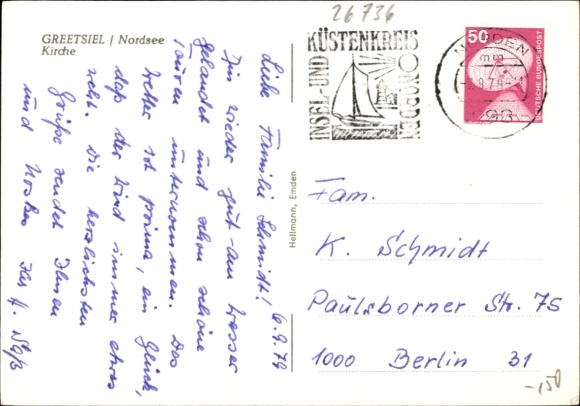 26736
GREETSIEL / Nordsee
Kirche
INSEL-UND
KÜSTENKREIS
NORDEN
NORDEN
-9.79-
50
DEUTSCHE BUNDESPOST
Liebe Familie Schmidt! 6.9.79
Bin wieder gut am Wasser
gelandet und schon schöne
Touren unternommen. Das
Wetter ist prima, ein Glück,
daß der Wind immer etwas
weht. Die herzlichsten
Grüße sendet Ihnen
und
Hellmann, Emden
Fam.
K. Schmidt
Paulsborner Str. 75
1000 Berlin 31
-,150